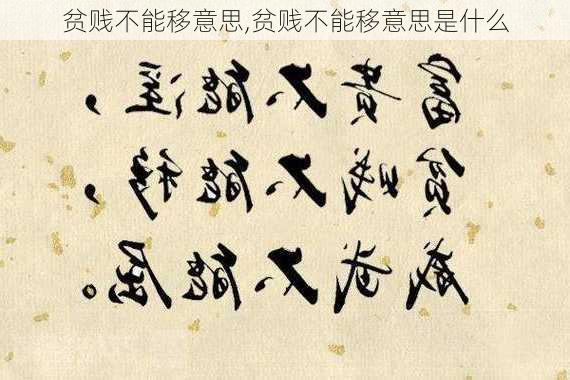 贫贱不能移意思,贫贱不能移意思是什么
富贵不能淫，
贫贱不能移，
威武不能屈。